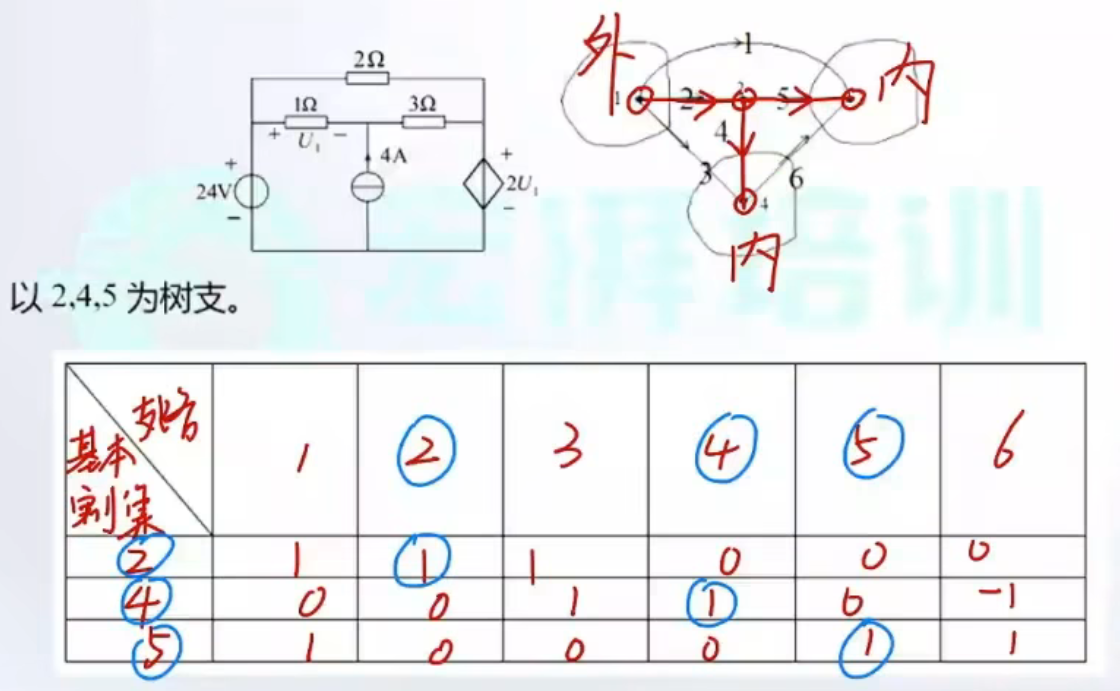 2Ω
1Ω
3Ω
+ U₁ −
4A
+
24V
−
+
2U₁
−
外
内
1
1
2
2
5
4
3
6
4
内
以 2,4,5 为树支。
支路
基本
割集
1 2 3 4 5 6
2 1 1 1 0 0 0
4 0 0 1 1 0 -1
5 1 0 0 0 1 1
培训